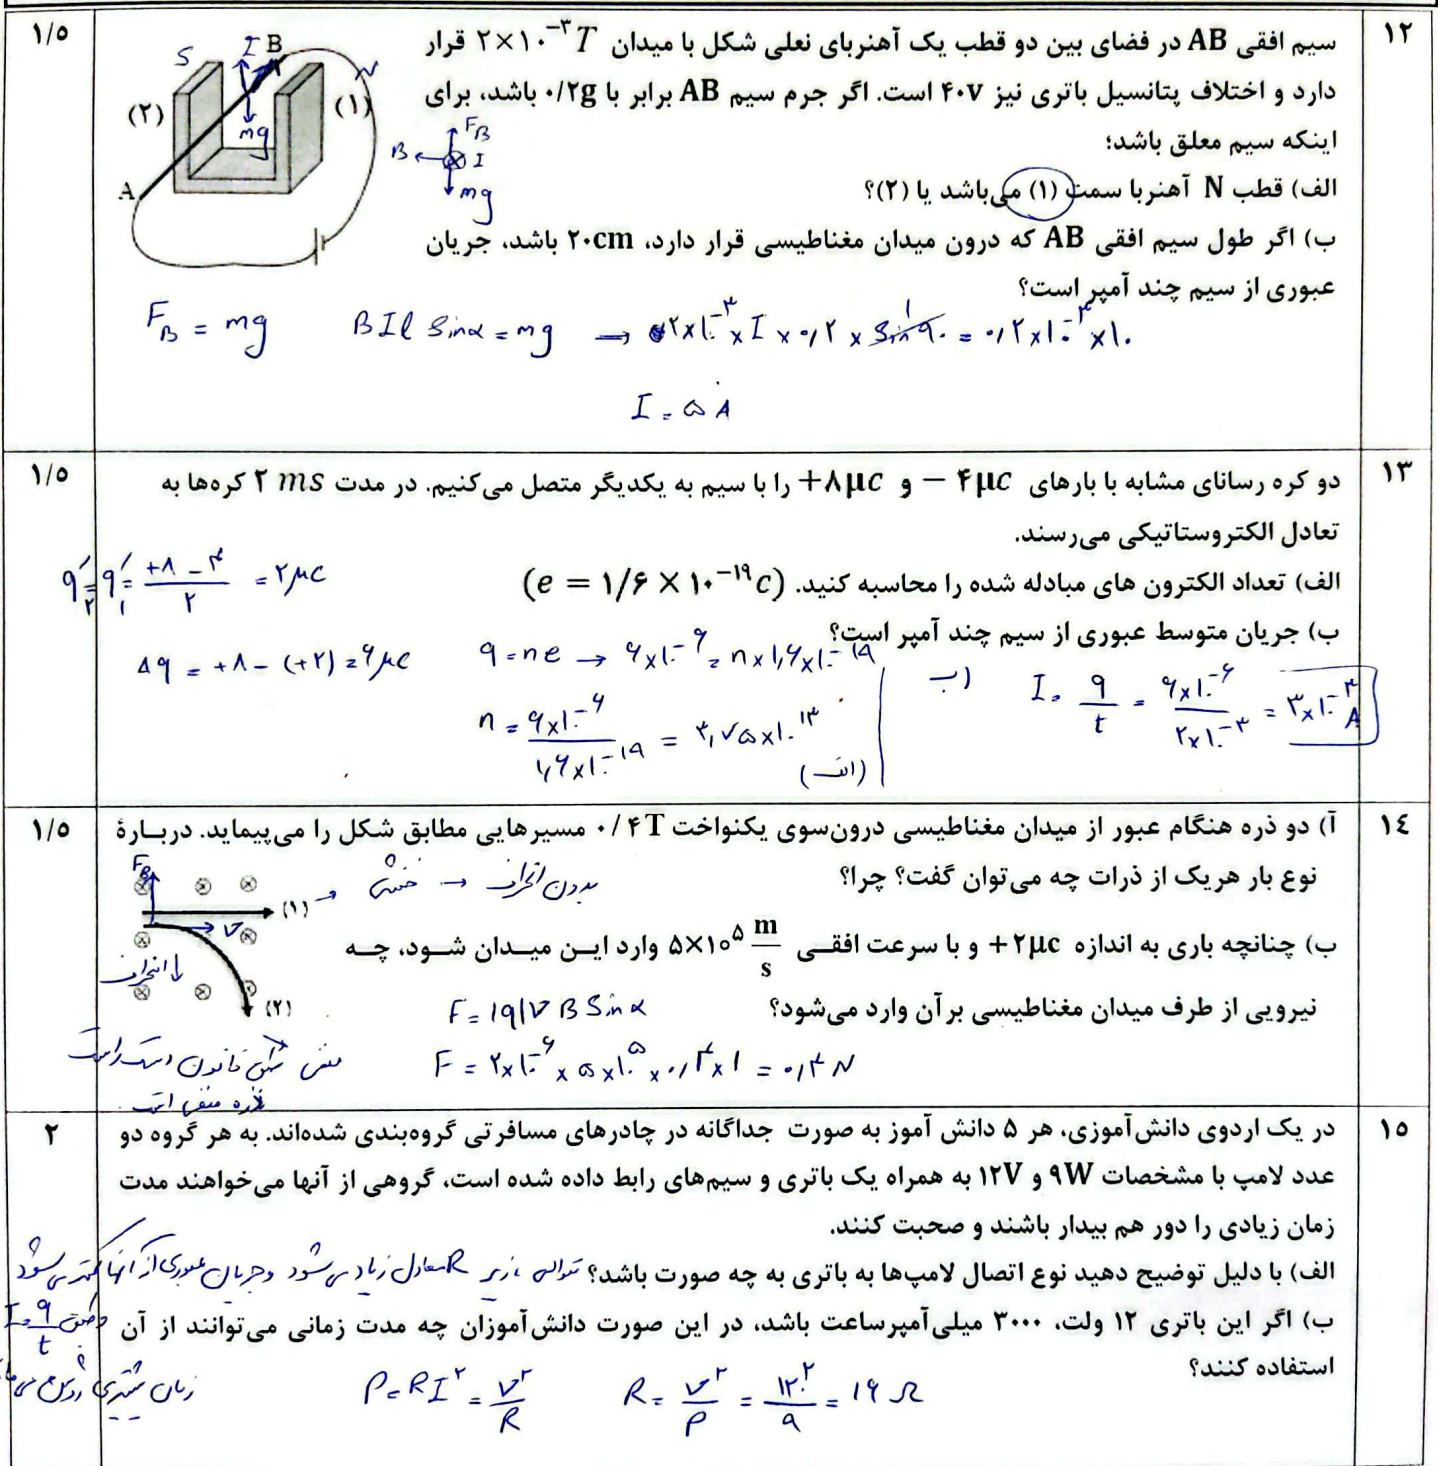 ۱۲
سیم افقی AB در فضای بین دو قطب یک آهنربای نعلی شکل با میدان ۲×۱۰⁻³ T قرار
دارد و اختلاف پتانسیل باتری نیز ۴۰v است. اگر جرم سیم AB برابر با ۰/۲g باشد، برای
اینکه سیم معلق باشد؛
الف) قطب N آهنربا سمت (۱) می‌باشد یا (۲)؟
ب) اگر طول سیم افقی AB که درون میدان مغناطیسی قرار دارد، ۲۰cm باشد، جریان
عبوری از سیم چند آمپر است؟
۱/۵
S I B N
(۲) (۱)
mg
A
F_B
B I
mg
F_B = mg BIl Sinα = mg → ۲×۱۰⁻³ × I × ۰,۲ × Sin۹۰ = ۰,۲×۱۰⁻³×۱۰
۱
I = ۵ A
۱۳
دو کره رسانای مشابه با بارهای −۴μc و +۸μc را با سیم به یکدیگر متصل می‌کنیم. در مدت ۲ ms کره‌ها به
تعادل الکتروستاتیکی می‌رسند.
الف) تعداد الکترون های مبادله شده را محاسبه کنید. (e = ۱/۶ × ۱۰⁻¹⁹c)
ب) جریان متوسط عبوری از سیم چند آمپر است؟
۱/۵
q′₂ = q′₁ = (+۸ − ۴)/۲ = ۲μc
Δq = +۸ − (+۲) = ۶μc q = ne → ۶×۱۰⁻⁶ = n×۱,۶×۱۰⁻¹⁹
n = ۶×۱۰⁻⁶/۱,۶×۱۰⁻¹⁹ = ۳,۷۵×۱۰¹³
(الف)
ب) I = q/t = ۶×۱۰⁻⁶/۲×۱۰⁻³ = ۳×۱۰⁻³ A
۱۴
آ) دو ذره هنگام عبور از میدان مغناطیسی درون‌سوی یکنواخت ۰/۴T مسیرهایی مطابق شکل را می‌پیماید. دربـارهٔ
نوع بار هریک از ذرات چه می‌توان گفت؟ چرا؟
ب) چنانچه باری به اندازه +۲μc و با سرعت افقـی ۵×۱۰⁵ m/s وارد ایـن میـدان شـود، چـه
نیرویی از طرف میدان مغناطیسی برآن وارد می‌شود؟
۱/۵
F_B
(۱) → خنثی ← بدون انحراف
V
انحراف
(۲)
F = |q|VB Sinα
F = ۲×۱۰⁻⁶ × ۵×۱۰⁵ × ۰,۴ × ۱ = ۰,۴ N
منفی طبق قانون دست راست
ذره منفی است.
۱۵
در یک اردوی دانش‌آموزی، هر ۵ دانش آموز به صورت جداگانه در چادرهای مسافرتی گروه‌بندی شده‌اند. به هر گروه دو
عدد لامپ با مشخصات ۹W و ۱۲V به همراه یک باتری و سیم‌های رابط داده شده است، گروهی از آنها می‌خواهند مدت
زمان زیادی را دور هم بیدار باشند و صحبت کنند.
الف) با دلیل توضیح دهید نوع اتصال لامپ‌ها به باتری به چه صورت باشد؟ متوالی زیرا R معادل زیاد می‌شود و جریان عبوری از آنها کمتر می‌شود
و طبق I = q/t
زمان بیشتری روشن می‌ماند
ب) اگر این باتری ۱۲ ولت، ۳۰۰۰ میلی‌آمپرساعت باشد، در این صورت دانش‌آموزان چه مدت زمانی می‌توانند از آن
استفاده کنند؟
۲
P = RI² = V²/R R = V²/P = ۱۲²/۹ = ۱۶ Ω